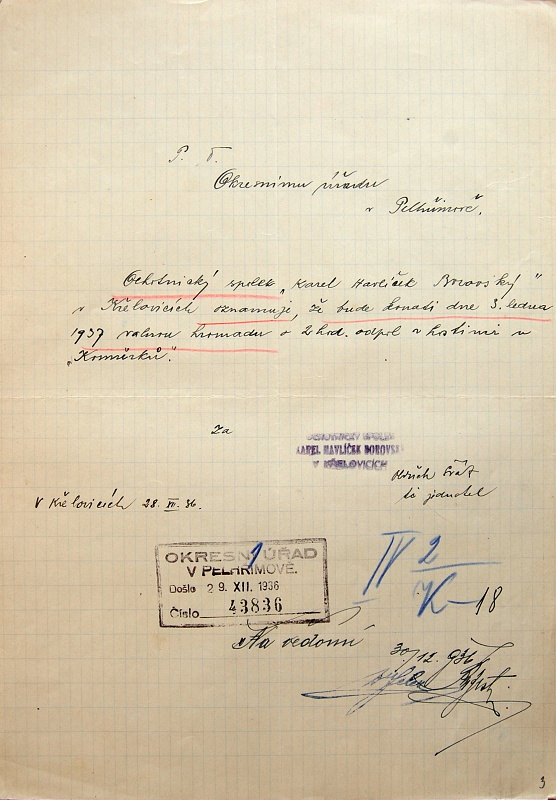 P. T.
Okresnímu úřadu
v Pelhřimově.
Ochotnický spolek „Karel Havlíček Borovský“
v Křelovicích oznamuje, že bude konati dne 3. ledna
1937 valnou hromadu o 2 hod. odpol v hostinci u
„Komárků“.
Za
OCHOTNICKÝ SPOLEK
KAREL HAVLÍČEK BOROVSK
V KŘELOVICÍCH
t. č. jednatel
V Křelovicích 28. XII. 36.
OKRESNÍ ÚŘAD
V PELHŘIMOVĚ.
Došlo 29. XII. 1936
Číslo 43836
IV 2
K-18
Na vědomí
30/12. 936
3